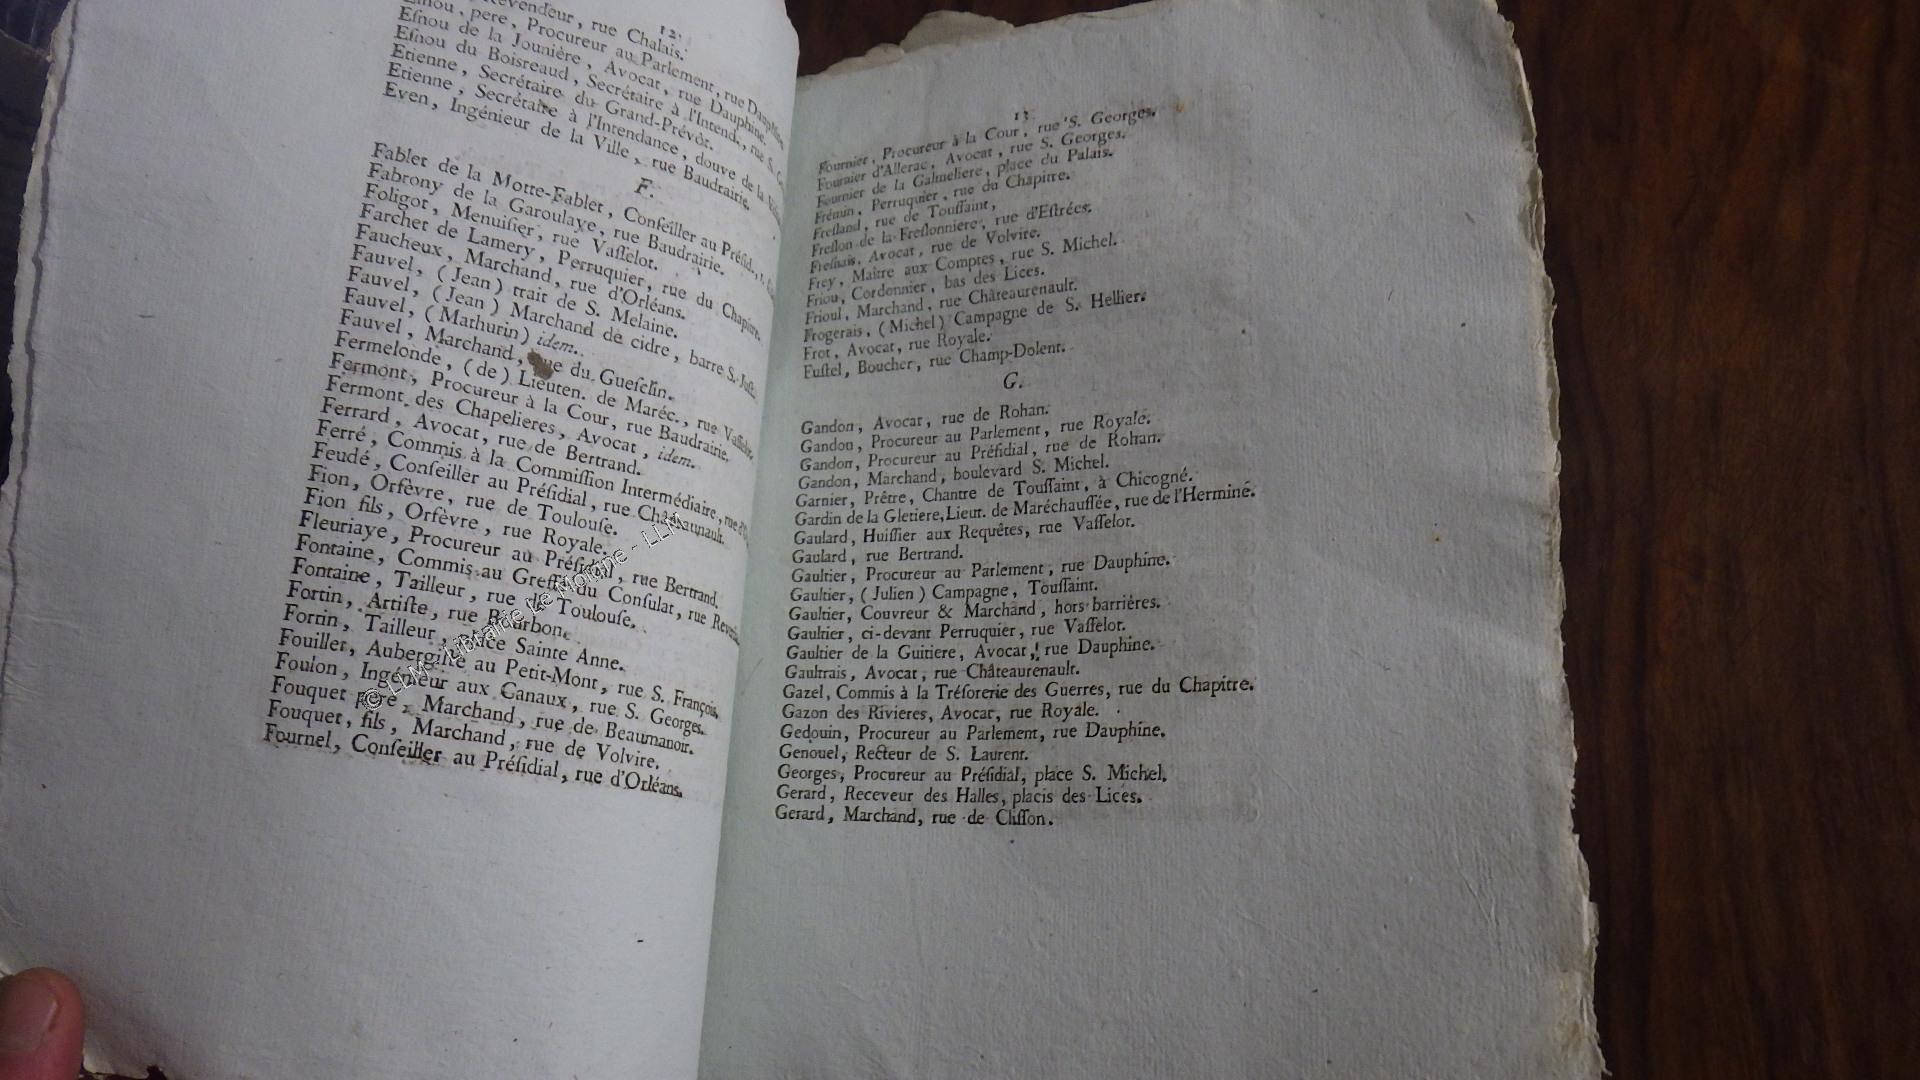 12.
Revendeur, rue Chalais.
Eſnou, pere, Procureur au Parlement, rue Dauphine
Eſnou de la Jouniére, Avocat, rue Dauphine.
Eſnou du Boisreaud, Secrétaire à l'Intend., rue S.
Etienne, Secrétaire du Grand-Prévôt.
Etienne, Secrétaire à l'Intendance, douve de la
Even, Ingénieur de la Ville, rue Baudrairie.
F.
Fablet de la Motte-Fablet, Conſeiller au Préſid.,
Fabrony de la Garoulaye, rue Baudrairie.
Foligot, Menuiſier, rue Vaſſelot.
Farchet de Lamery, Perruquier, rue du Chapitre.
Faucheux, Marchand, rue d'Orléans.
Fauvel, (Jean) trait de S. Melaine.
Fauvel, (Jean) Marchand de cidre, barre S. Juſt.
Fauvel, (Mathurin) idem.
Fauvel, Marchand, rue du Gueſclin.
Fermelonde, (de) Lieuten. de Maréc., rue Vaſſelot.
Fermont, Procureur à la Cour, rue Baudrairie.
Fermont des Chapelieres, Avocat, idem.
Ferrard, Avocat, rue de Bertrand.
Ferré, Commis à la Commiſſion Intermédiaire, rue
Feudé, Conſeiller au Préſidial, rue Châteaurenault.
Fion, Orfèvre, rue de Toulouſe.
Fion fils, Orfèvre, rue Royale.
Fleuriaye, Procureur au Préſidial, rue Bertrand.
Fontaine, Commis au Greffe du Conſulat, rue
Fontaine, Tailleur, rue de Toulouſe.
Fortin, Artiſte, rue Bourbon.
Fortin, Tailleur, place Sainte Anne.
Fouillet, Aubergiſte au Petit-Mont, rue S. François.
Foulon, Ingénieur aux Canaux, rue S. Georges.
Fouquet pere, Marchand, rue de Beaumanoir.
Fouquet, fils, Marchand, rue de Volvire.
Fournel, Conſeiller au Préſidial, rue d'Orléans.
© LLM - Librairie Le Moinne - LLM
13.
Fournier, Procureur à la Cour, rue S. Georges.
Fournier d'Allerac, Avocat, rue S. Georges.
Fournier de la Galmeliere, place du Palais.
Frémin, Perruquier, rue du Chapitre.
Freſland, rue de Touſſaint,
Freſlon de la Freſlonniere, rue d'Eſtrées.
Freſnais, Avocat, rue de Volvire.
Frey, Maître aux Comptes, rue S. Michel.
Friou, Cordonnier, bas des Lices.
Frioul, Marchand, rue Châteaurenault.
Frogerais, (Michel) Campagne de S. Hellier.
Frot, Avocat, rue Royale.
Fuſtel, Boucher, rue Champ-Dolent.
G.
Gandon, Avocat, rue de Rohan.
Gandon, Procureur au Parlement, rue Royale.
Gandon, Procureur au Préſidial, rue de Rohan.
Gandon, Marchand, boulevard S. Michel.
Garnier, Prêtre, Chantre de Touſſaint, à Chicogné.
Gardin de la Gletiere, Lieut. de Maréchauſſée, rue de l'Hermine.
Gaulard, Huiſſier aux Requêtes, rue Vaſſelot.
Gaulard, rue Bertrand.
Gaultier, Procureur au Parlement, rue Dauphine.
Gaultier, (Julien) Campagne, Touſſaint.
Gaultier, Couvreur & Marchand, hors barrières.
Gaultier, ci-devant Perruquier, rue Vaſſelot.
Gaultier de la Guitiere, Avocat, rue Dauphine.
Gaultrais, Avocat, rue Châteaurenault.
Gazel, Commis à la Tréſorerie des Guerres, rue du Chapitre.
Gazon des Rivieres, Avocat, rue Royale.
Gedouin, Procureur au Parlement, rue Dauphine.
Genouel, Recteur de S. Laurent.
Georges, Procureur au Préſidial, place S. Michel.
Gerard, Receveur des Halles, placis des Lices.
Gerard, Marchand, rue de Cliſſon.